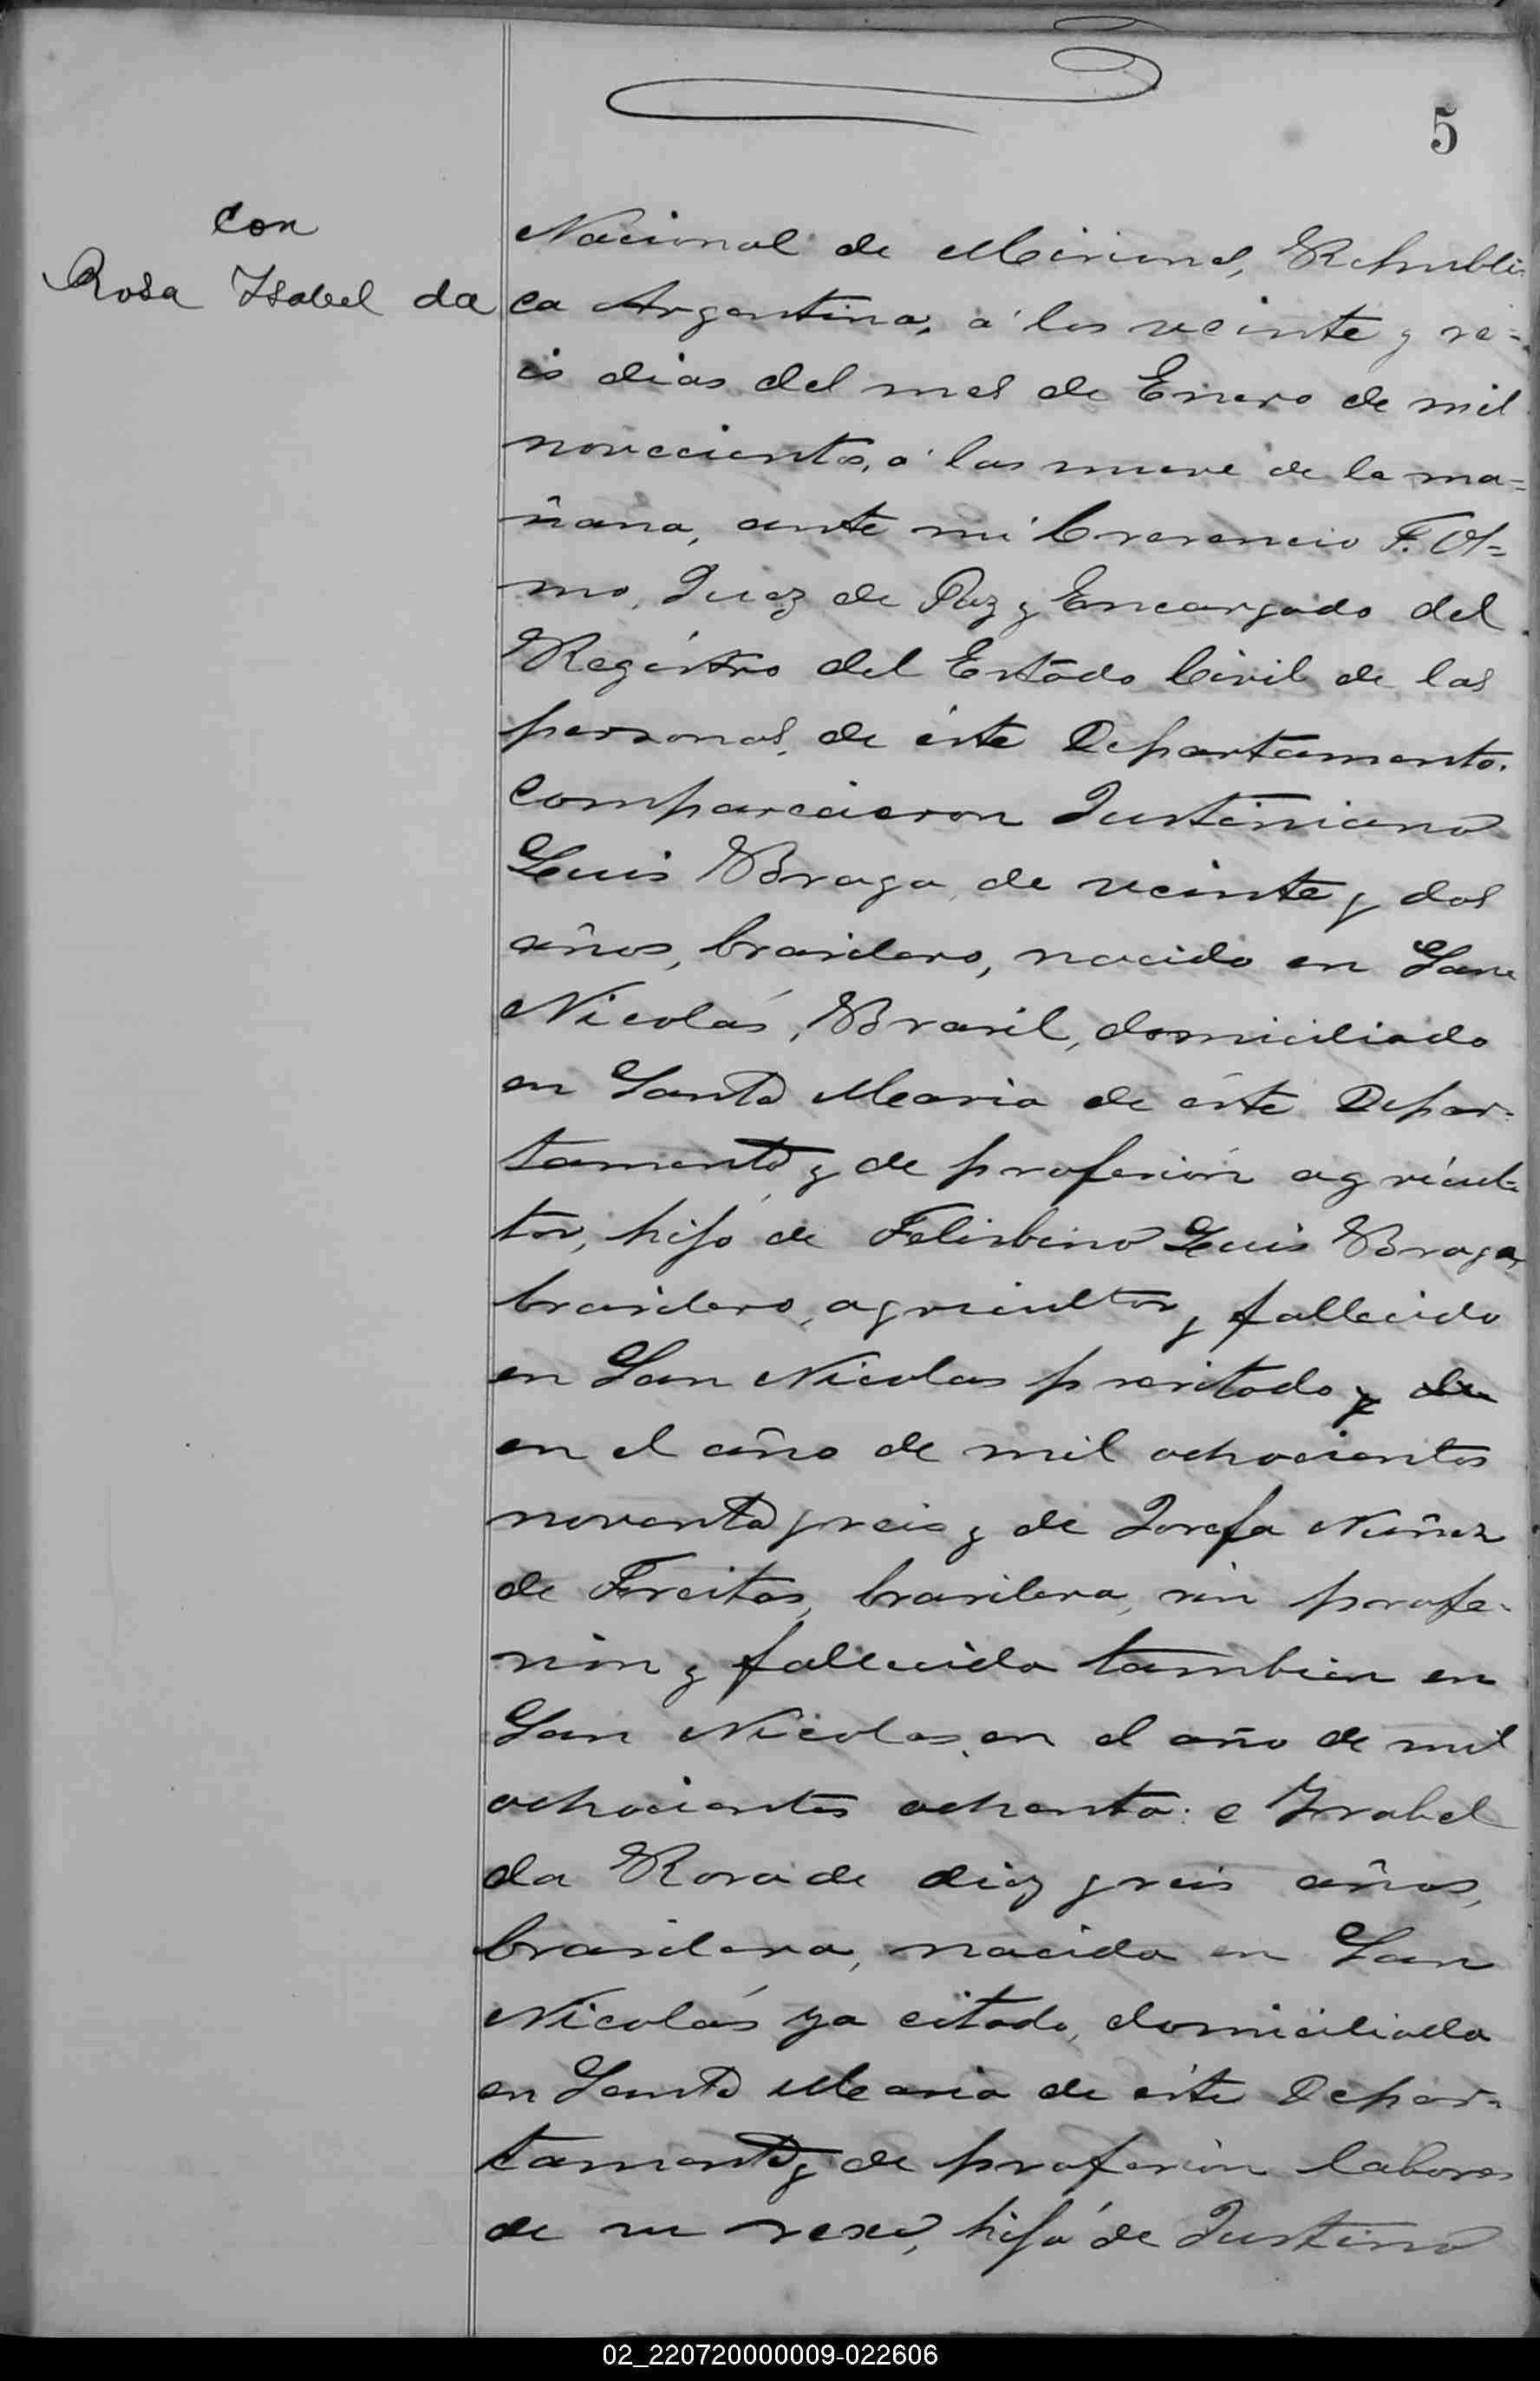 5
Con
Rosa Isabel da
Nacional de Misiones, Republi-
ca Argentina, á los veinte y se=
is dias del mes de Enero de mil
novecientos, á las nueve de la ma=
ñana, ante mi Cresencio F. Ol=
mo, Juez de Paz y Encargado del
Registro del Estado Civil de las
personas, de éste Departamento.
comparecieron Justiniano
Luis Braga, de veinte y dos
años, brasilero, nacido en San
Nicolás, Brasil, domiciliado
en Santa Maria de éste Depar-
tamento y de profesión agricul-
tor, hijo de Felisbino Luis Braga,
brasilero, agricultor y fallecido
en San Nicolas precitado y de
en el año de mil ochocientos
noventa y seis y de Josefa Nuñez
de Freitas, brasilera, sin profe-
sion y fallecida tambien en
San Nicolas, en el año de mil
ochocientos ochenta: e Isabel
da Rosa de diez y seis años,
brasilera, nacida en San
Nicolás ya citado, domiciliada
en Santa Maria de éste Depar-
tamento y de profesion labores
de su sexo, hija de Justino
02_220720000009-022606